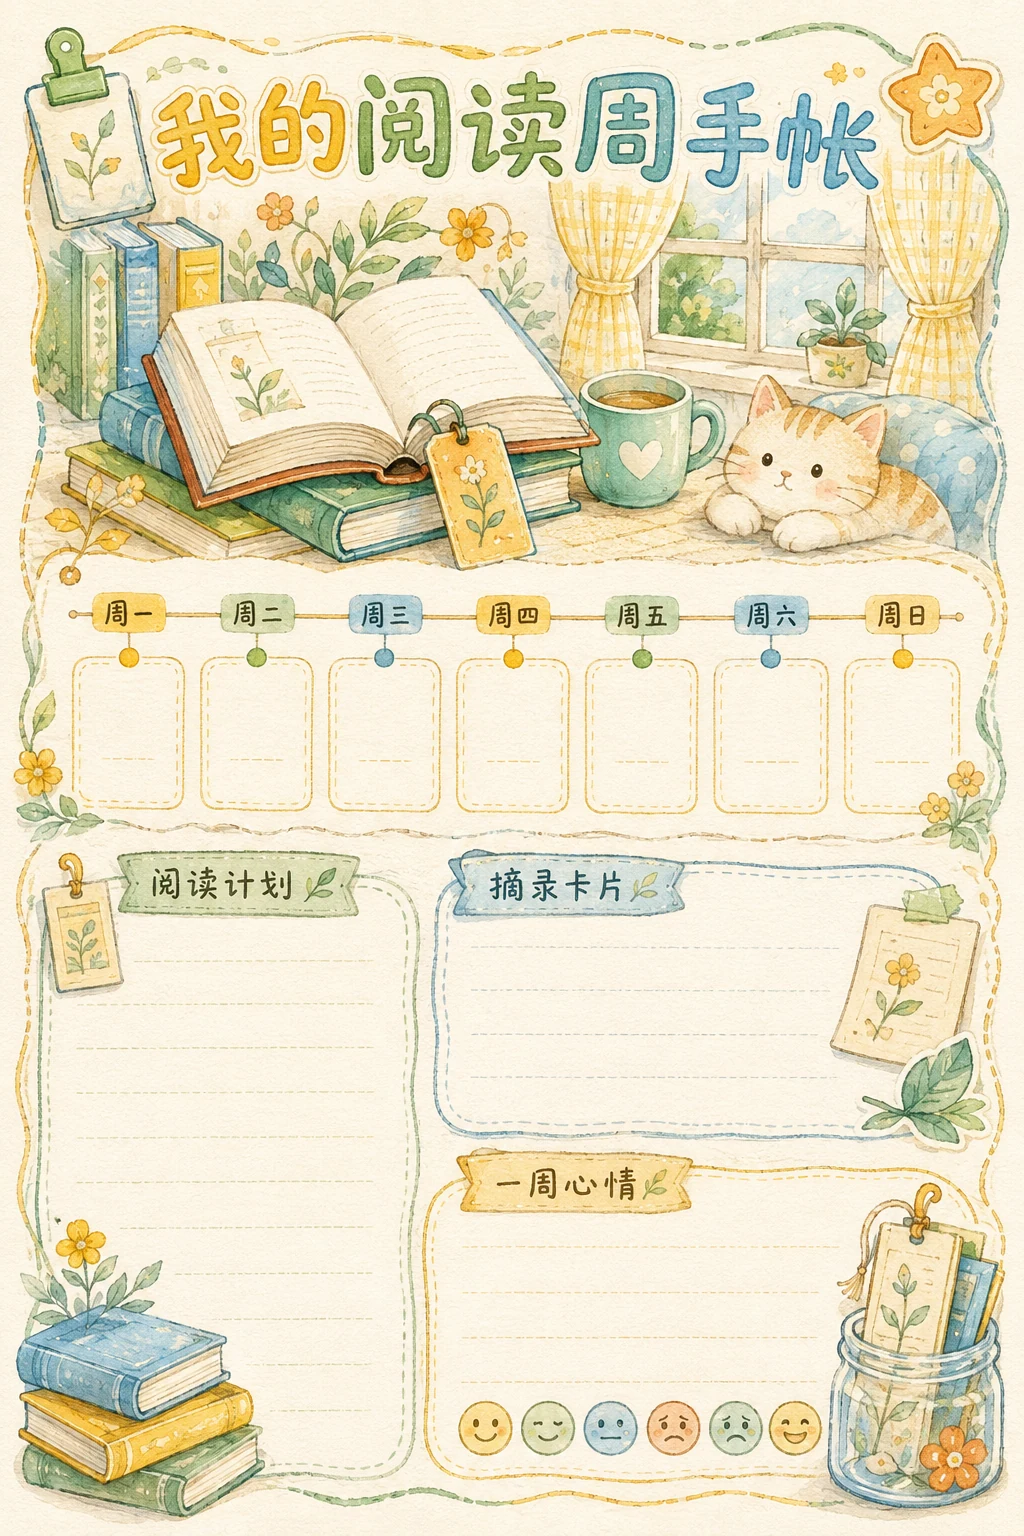 我的阅读周手帐
周一 周二 周三 周四 周五 周六 周日
阅读计划
摘录卡片
一周心情